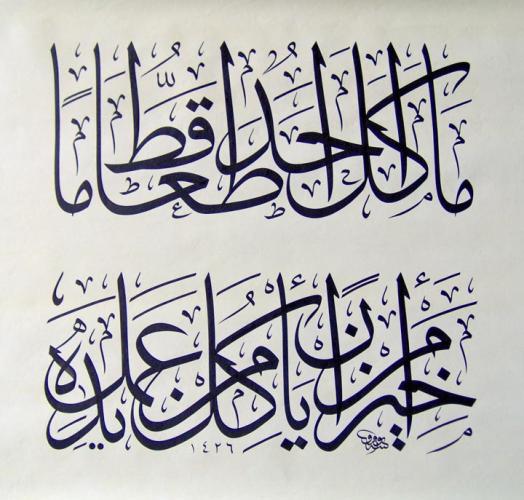 مَا أَكَلَ أَحَدٌ طَعَامًا قَطُّ
خَيْرًا مِنْ أَنْ يَأْكُلَ مِنْ عَمَلِ يَدِهِ
١٤٢٦